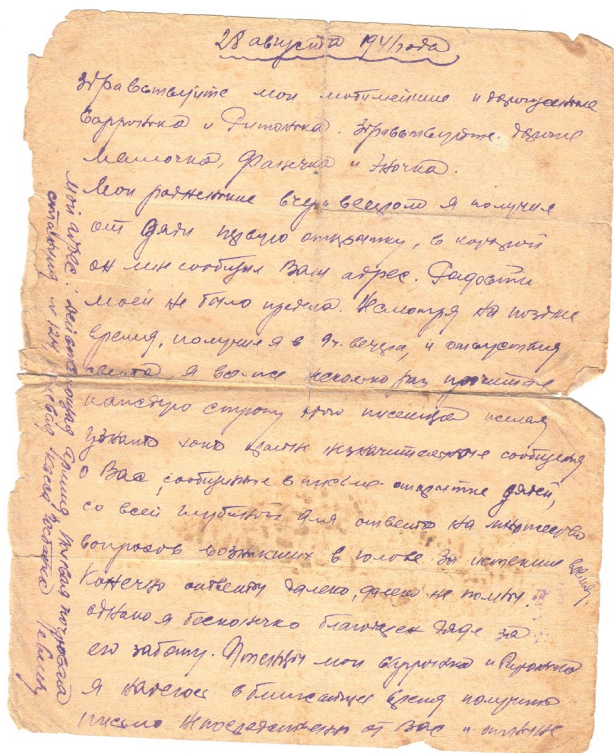 28 августа 1941 года
Здравствуйте мои любимейшие и дорогие
и . Здравствуйте дорогие
мамочка, Фанечка и Эночка.
Мои родненькие вчера вечером я получил
от дяди первую открытку, в которой
он мне сообщил Ваш адрес. Радости
моей не было предела. Несмотря на позднее
время, получил я в 9 ч. вечера, и отсутствия
света я всё же несколько раз прочитал
каждую строку этого желая
узнать хоть незначительное сообщения
о Вас, сообщенные в письме открытке дядей,
со всей глубиной для ответа на множество
вопросов возникших в голове за истекшее время.
Конечно ответы далеко, далеко не полны.
однако я бесконечно благодарен дяде за
его заботу. Теперь мои и
я надеюсь в ближайшее время получить
письмо непосредственно от Вас и
Мой адрес: Действующая Армия, Полевая почтовая
станция №